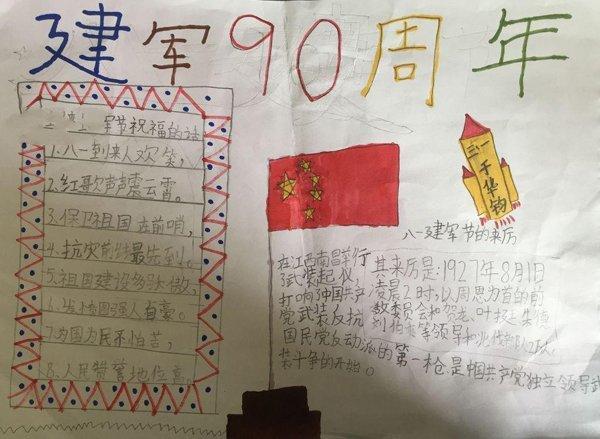 建军90周年
军节祝福的话
1.八一到来人欢笑,
2.红歌声声震云霄。
3.保卫祖国在前哨,
4.抗灾前线最先到。
5.祖国建设
国强人自豪。
7.为国为民不怕苦,
8.人民赞誉地位高。
八一建军节的来历
其来历是:1927年8月1日
凌晨2时,以周恩为首的前
委员会和贺龙、叶挺、朱德
刘伯来等领导和北伐部队2万人,
在江西南昌举行
了武装起仪,
打响了中国共产
党武装反抗
国民党反动派的第一枪.是中国共产党独立领导武
装斗争的开始。